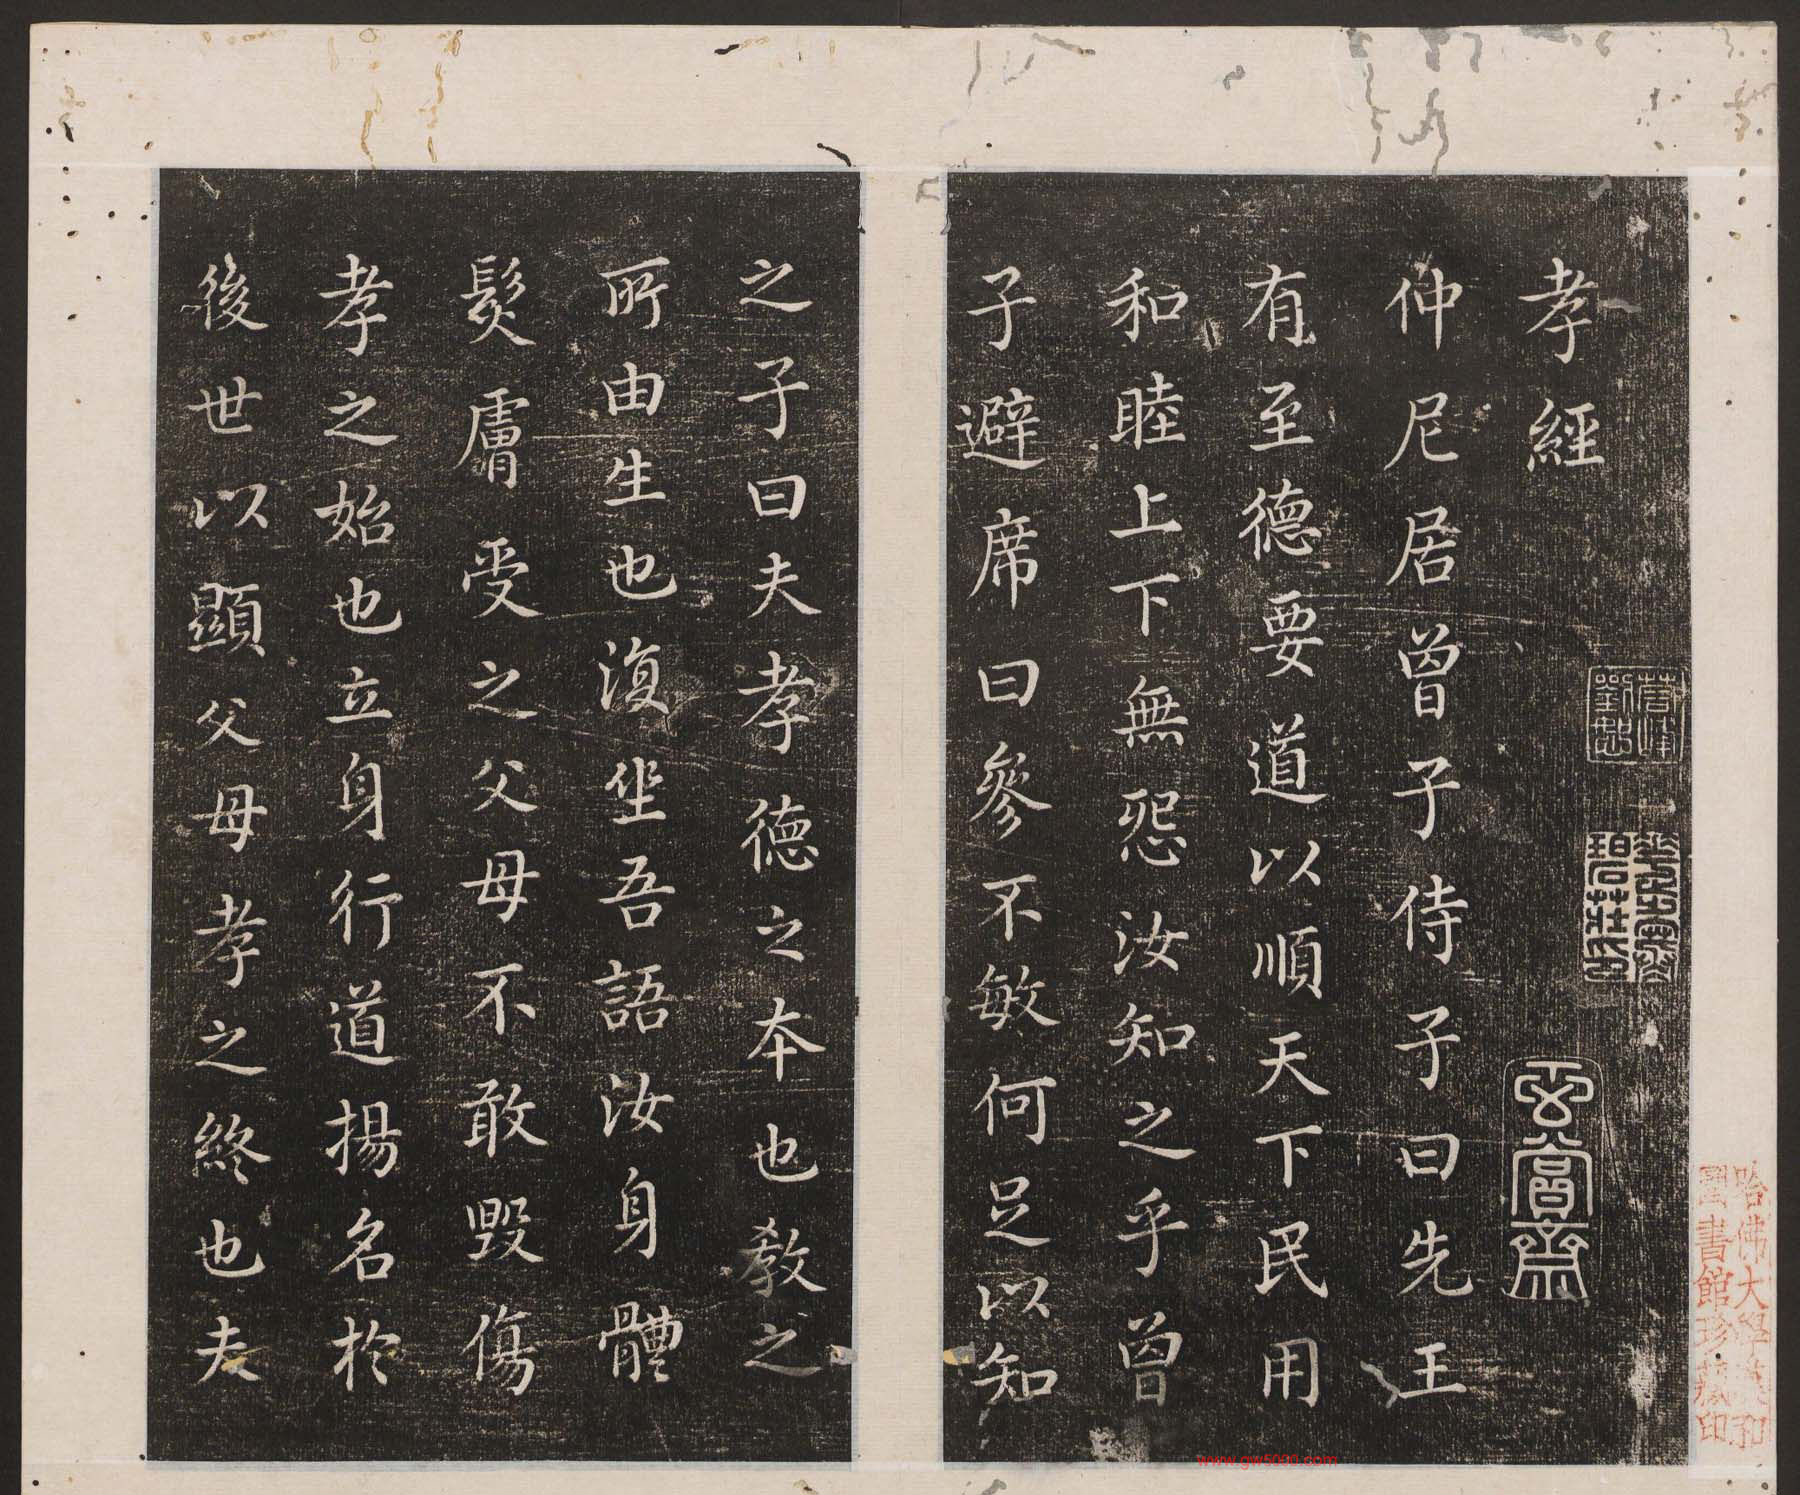 孝經
仲尼居曾子侍子曰先王
有至德要道以順天下民用
和睦上下無怨汝知之乎曾
子避席曰參不敏何足以知
之子曰夫孝德之本也教之
所由生也復坐吾語汝身體
髮膚受之父母不敢毀傷
孝之始也立身行道揚名於
後世以顯父母孝之終也夫
玄賞齋
哈佛大學漢和
圖書館珍藏印
www.gw5000.com